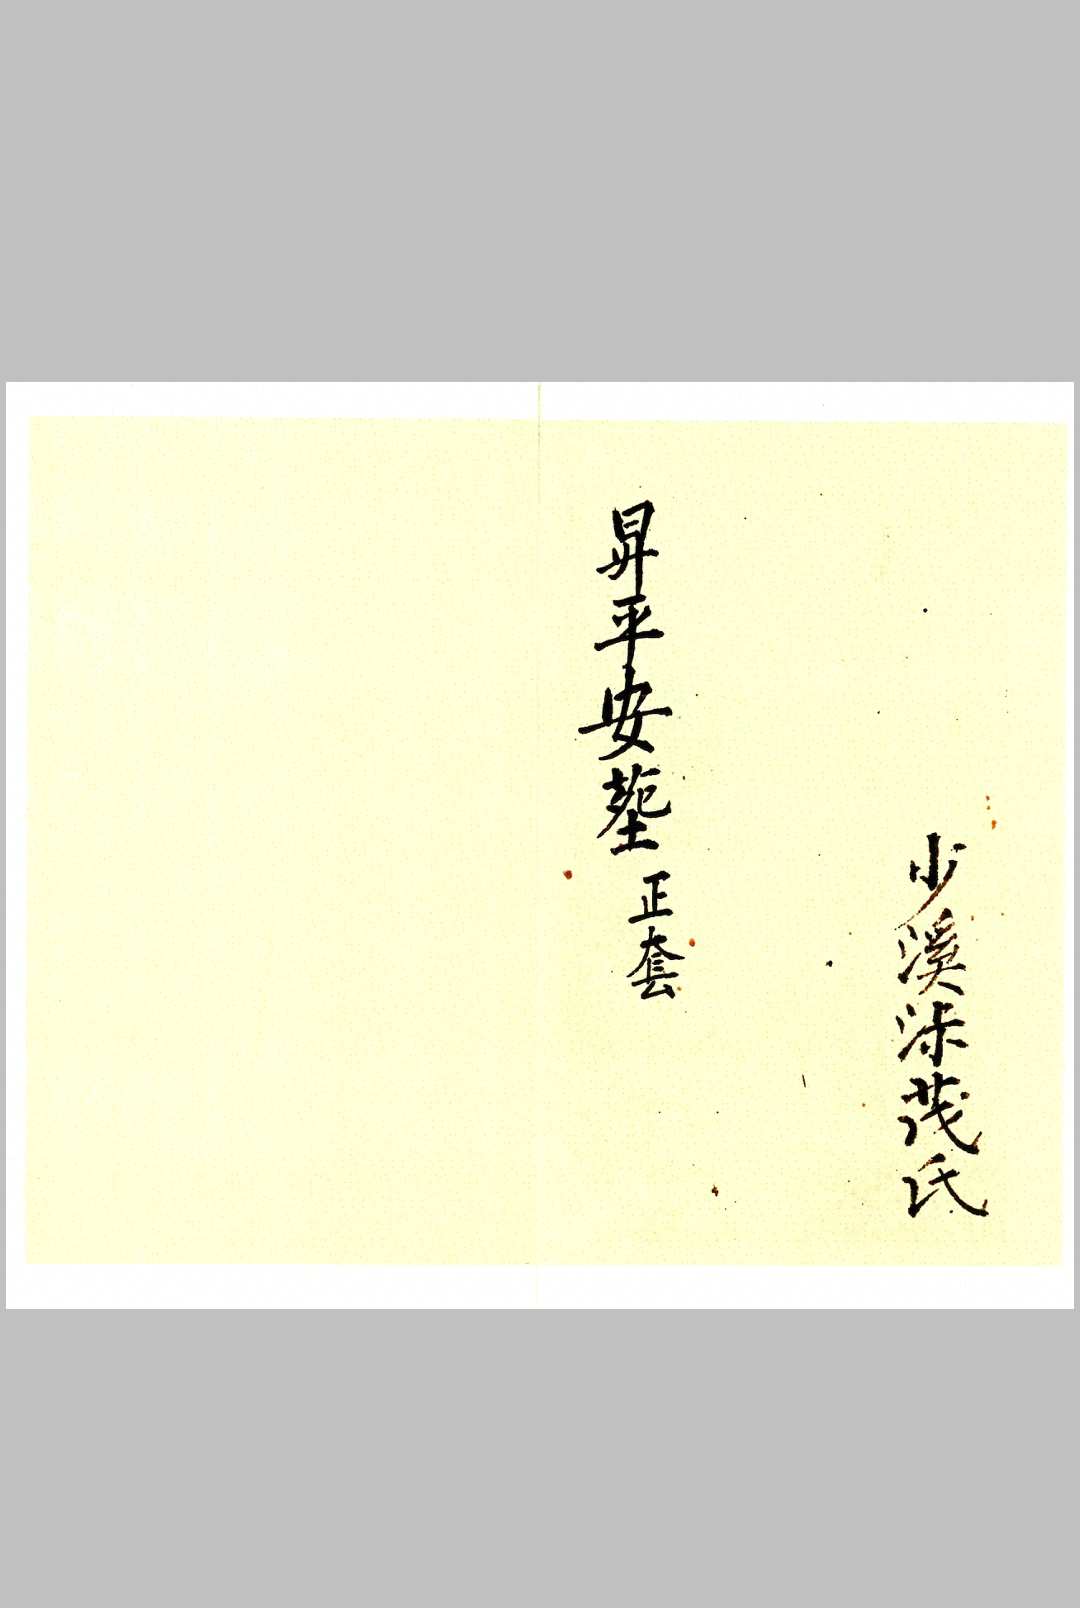 少溪沐茂氏
昇平安塟正套